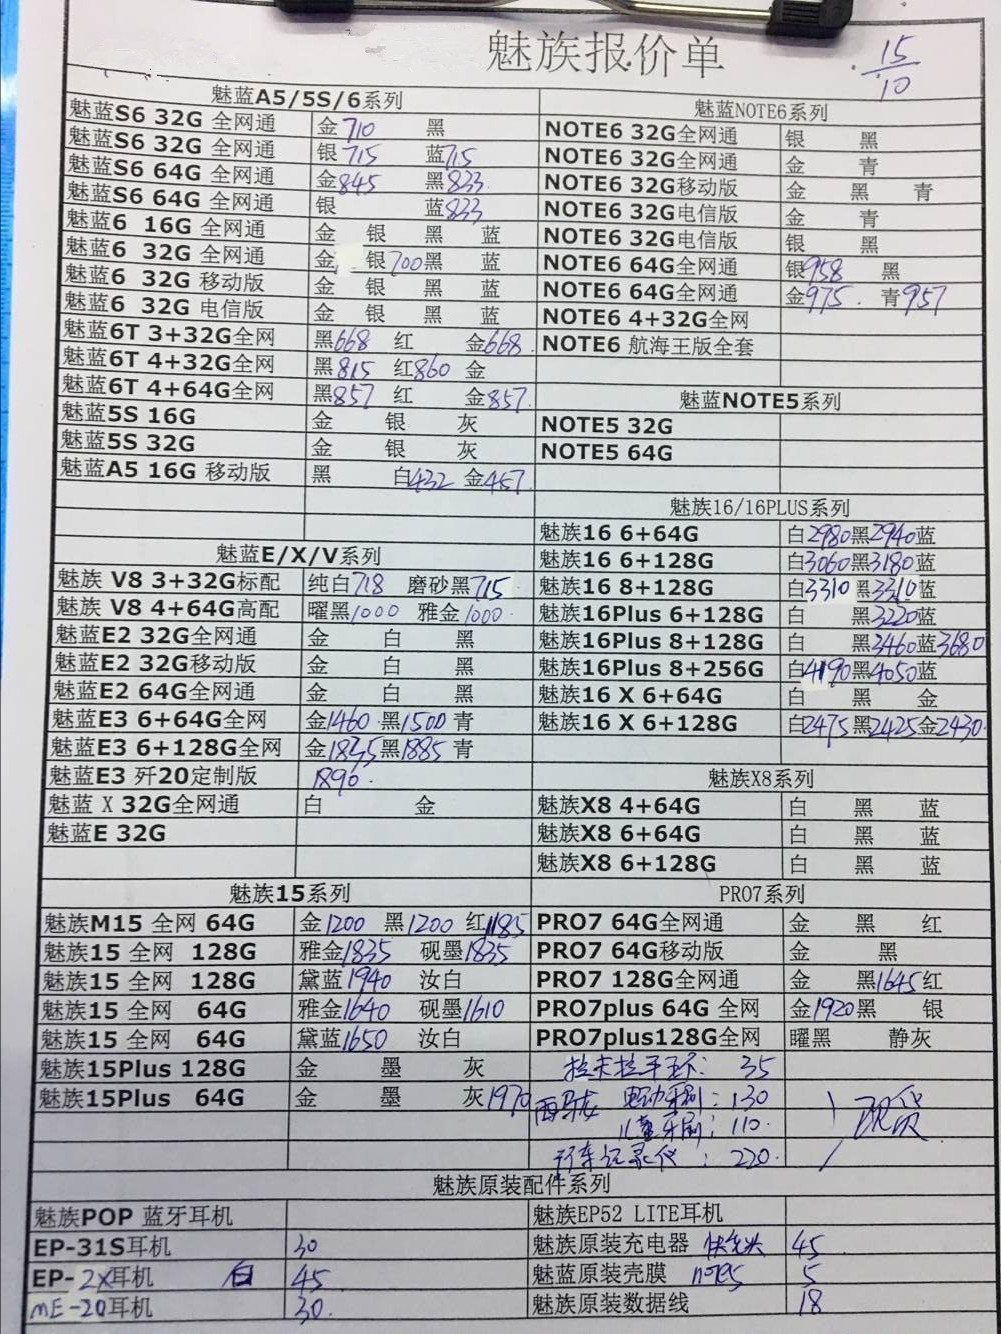 魅族报价单
15/10
魅蓝A5/5S/6系列
魅蓝S6 32G 全网通 金710 黑
魅蓝S6 32G 全网通 银715 蓝715
魅蓝S6 64G 全网通 金845 黑833
魅蓝S6 64G 全网通 银 蓝833
魅蓝6 16G 全网通 金 银 黑 蓝
魅蓝6 32G 全网通 金 银700黑 蓝
魅蓝6 32G 移动版 金 银 黑 蓝
魅蓝6 32G 电信版 金 银 黑 蓝
魅蓝6T 3+32G全网 黑668 红 金668
魅蓝6T 4+32G全网 黑815 红860 金
魅蓝6T 4+64G全网 黑857 红 金857
魅蓝5S 16G 金 银 灰
魅蓝5S 32G 金 银 灰
魅蓝A5 16G 移动版 黑 白432 金457
魅蓝E/X/V系列
魅族 V8 3+32G标配 纯白718 磨砂黑715
魅族 V8 4+64G高配 曜黑1000 雅金1000
魅蓝E2 32G全网通 金 白 黑
魅蓝E2 32G移动版 金 白 黑
魅蓝E2 64G全网通 金 白 黑
魅蓝E3 6+64G全网 金1460 黑1500 青
魅蓝E3 6+128G全网 金1835黑1885 青
魅蓝E3 歼20定制版 1890
魅蓝 X 32G全网通 白 金
魅蓝E 32G
魅族15系列
魅族M15 全网 64G 金1200 黑1200 红1185
魅族15 全网 128G 雅金1835 砚墨1835
魅族15 全网 128G 黛蓝1940 汝白
魅族15 全网 64G 雅金1640 砚墨1610
魅族15 全网 64G 黛蓝1650 汝白
魅族15Plus 128G 金 墨 灰
魅族15Plus 64G 金 墨 灰1970
魅蓝NOTE6系列
NOTE6 32G全网通 银 黑
NOTE6 32G全网通 金 青
NOTE6 32G移动版 金 黑 青
NOTE6 32G电信版 金 青
NOTE6 32G电信版 银 黑
NOTE6 64G全网通 银958 黑
NOTE6 64G全网通 金975 青957
NOTE6 4+32G全网
NOTE6 航海王版全套
魅蓝NOTE5系列
NOTE5 32G
NOTE5 64G
魅族16/16PLUS系列
魅族16 6+64G 白2980黑2940蓝
魅族16 6+128G 白3060黑3180蓝
魅族16 8+128G 白3310 黑3310蓝
魅族16Plus 6+128G 白 黑3220蓝
魅族16Plus 8+128G 白 黑3460蓝3680
魅族16Plus 8+256G 白4190黑4050蓝
魅族16 X 6+64G 白 黑 金
魅族16 X 6+128G 白2475黑2425金2430
魅族X8系列
魅族X8 4+64G 白 黑 蓝
魅族X8 6+64G 白 黑 蓝
魅族X8 6+128G 白 黑 蓝
PRO7系列
PRO7 64G全网通 金 黑 红
PRO7 64G移动版 金 黑
PRO7 128G全网通 金 黑1645红
PRO7plus 64G 全网 金1920黑 银
PRO7plus128G全网 曜黑 静灰
拉卡拉手环: 35
西马龙 电动牙刷: 130
儿童牙刷: 110
行车记录仪: 220
现货
魅族原装配件系列
魅族POP 蓝牙耳机
EP-31S耳机 30
EP-2X耳机 白 45
ME-20耳机 30
魅族EP52 LITE耳机
魅族原装充电器 快充头 45
魅蓝原装壳膜 note5 5
魅族原装数据线 18